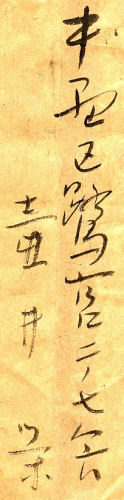 中野区鷺宮二ノ七八六
壺井栄